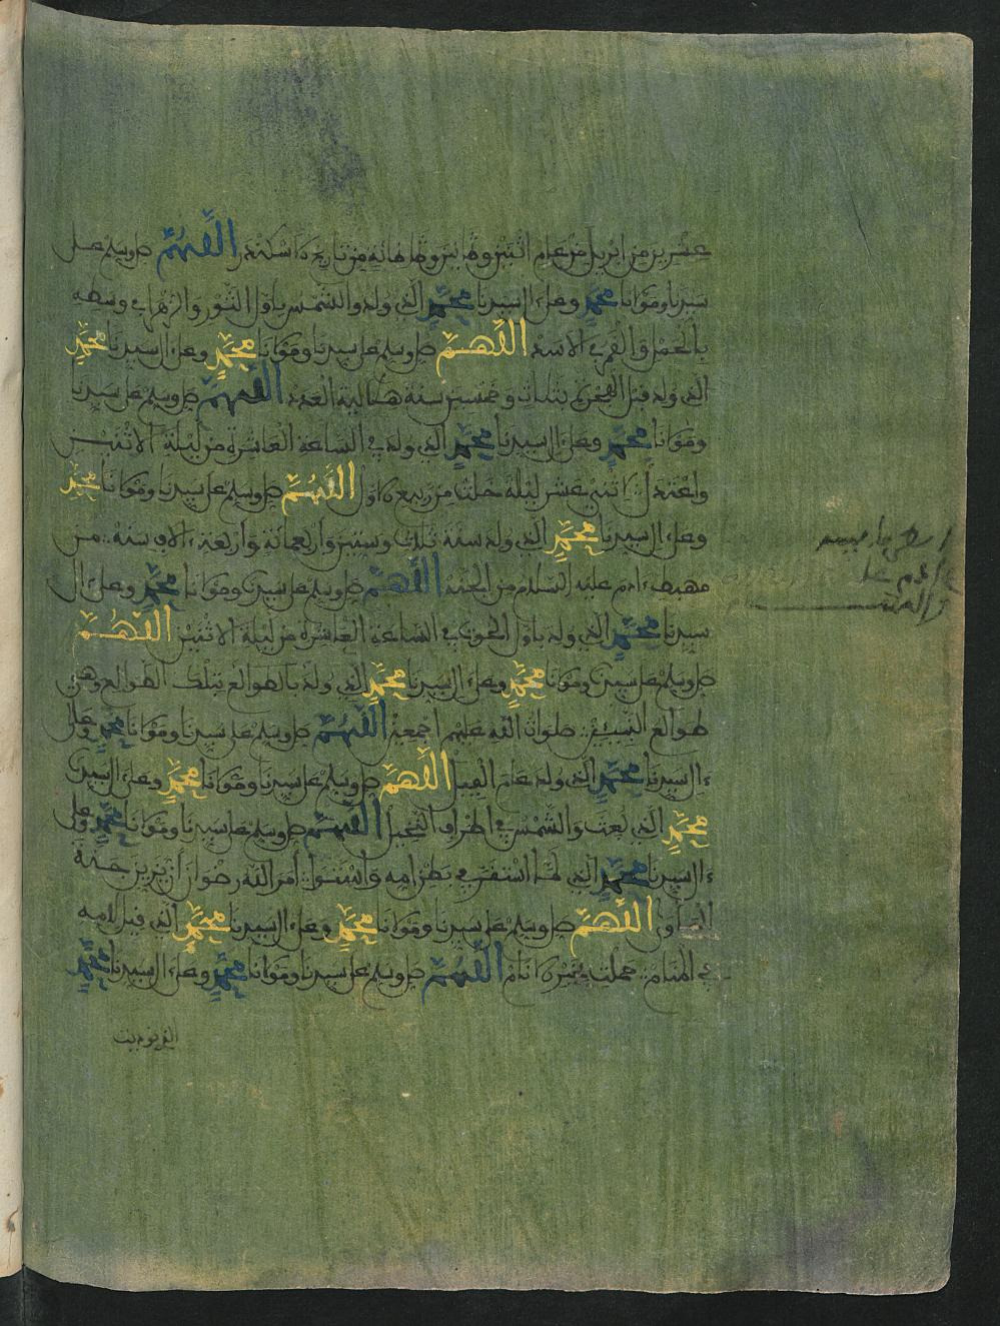 عشرين من ابريل من عام اثنين وثمانين وثمانمائة من تاريخ الاسكندر اللهم صل وسلم على
سيدنا ومولانا محمد وعلى ءال سيدنا محمد الذي ولد والشمس باول الثور والزهرا في وسطه
بالحمل والقمر في الاسد اللهم صل وسلم على سيدنا ومولانا محمد وعلى ءال سيدنا محمد
الذي ولد قبل الهجرة بثلاث وخمسين سنة هلالية العدد اللهم صل وسلم على سيدنا
ومولانا محمد وعلى ءال سيدنا محمد الذي ولد في الساعة العاشرة من ليلة الاثنين
لاثنتي عشر ليلة خلت من ربيع الاول اللهم صل وسلم على سيدنا ومولانا محمد
وعلى ءال سيدنا محمد الذي ولد سنة ثلاث وستين واربعمائة واربعة ءالاف سنة من
مهبط ءادم عليه السلام من الجنة اللهم صل وسلم على سيدنا ومولانا محمد وعلى ءال
سيدنا محمد الذي ولد باول الحوت في الساعة العاشرة من ليلة الاثنين اللهم
صل وسلم على سيدنا ومولانا محمد وعلى ءال سيدنا محمد الذي ولد بالطوالع بتلك الطوالع وهي
طوالع النبيئين صلوات الله عليهم اجمعين اللهم صل وسلم على سيدنا ومولانا محمد وعلى
ءال سيدنا محمد الذي ولد عام الفيل اللهم صل وسلم على سيدنا ومولانا محمد وعلى ءال سيدنا
محمد الذي بعث والشمس في اطراف النخيل اللهم صل وسلم على سيدنا ومولانا محمد وعلى
ءال سيدنا محمد الذي لما استقر في بطن امه امر الله رضوان ان يزين جنة
المأوى اللهم صل وسلم على سيدنا ومولانا محمد وعلى ءال سيدنا محمد الذي قيل لامه
في المنام حملت بخير الانام اللهم صل وسلم على سيدنا ومولانا محمد وعلى ءال سيدنا محمد